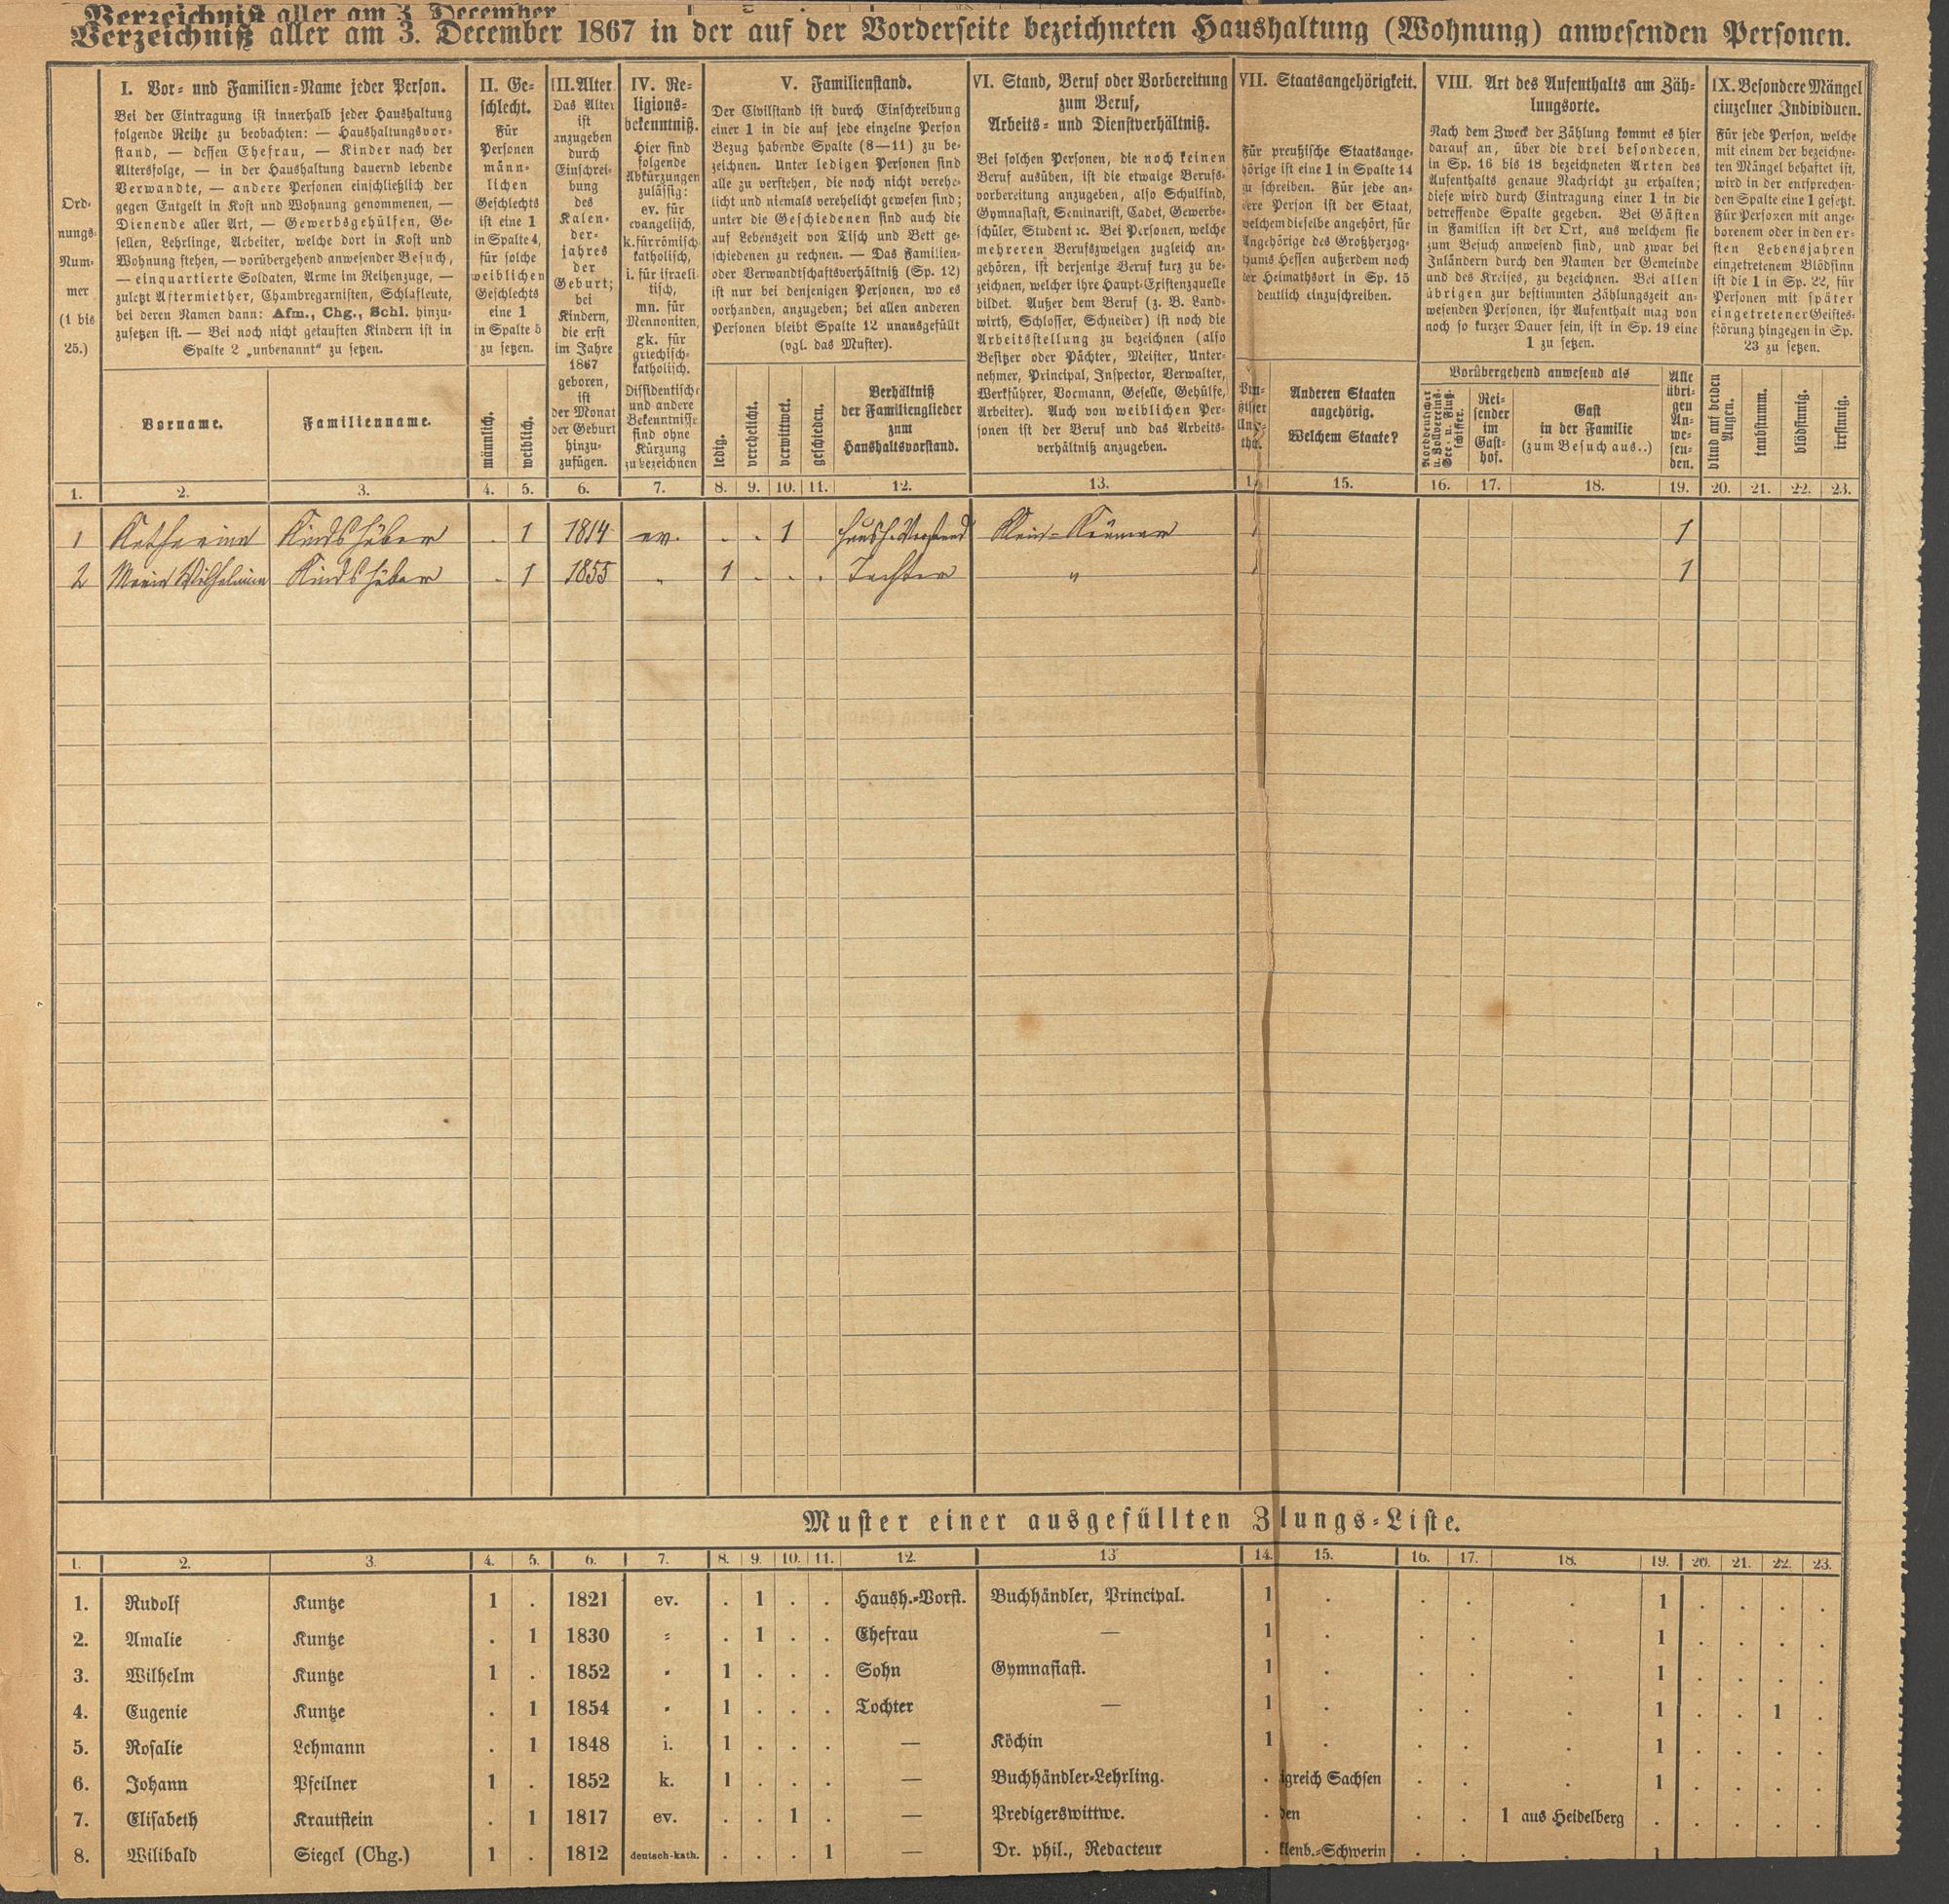 Verzeichniß aller am 3. December
Verzeichniß aller am 3. December 1867 in der auf der Vorderseite bezeichneten Haushaltung (Wohnung) anwesenden Personen.
Ord-
nungs-
Num-
mer
(1 bis
25.)
I. Vor- und Familien-Name jeder Person.
Bei der Eintragung ist innerhalb jeder Haushaltung
folgende Reihe zu beobachten: — Haushaltungsvor-
stand, — dessen Ehefrau, — Kinder nach der
Altersfolge, — in der Haushaltung dauernd lebende
Verwandte, — andere Personen einschließlich der
gegen Entgelt in Kost und Wohnung genommenen, —
Dienende aller Art, — Gewerbsgehülfen, Ge-
sellen, Lehrlinge, Arbeiter, welche dort in Kost und
Wohnung stehen, — vorübergehend anwesender Besuch,
— einquartierte Soldaten, Arme im Reihenzuge, —
zuletzt Aftermiether, Chambregarnisten, Schlafleute,
bei deren Namen dann: Afm., Chg., Schl. hinzu-
zusetzen ist. — Bei noch nicht getauften Kindern ist in
Spalte 2 „unbenannt“ zu setzen.
Vorname.
Familienname.
II. Ge-
schlecht.
Für
Personen
männ-
lichen
Geschlechts
ist eine 1
in Spalte 4,
für solche
weiblichen
Geschlechts
eine 1
in Spalte 5
zu setzen.
männlich.
weiblich.
III. Alter
Das Alter
ist
anzugeben
durch
Einschrei-
bung
des
Kalen-
der-
jahres
der
Geburt;
bei
Kindern,
die erst
im Jahre
1867
geboren,
ist
der Monat
der Geburt
hinzu-
zufügen.
IV. Re-
ligions-
bekenntniß.
Hier sind
folgende
Abkürzungen
zulässig:
ev. für
evangelisch,
k. für römisch-
katholisch,
i. für israeli-
tisch,
mn. für
Mennoniten,
gk. für
griechisch-
katholisch.
Dissidentische
und andere
Bekenntnisse
sind ohne
Kürzung
zu bezeichnen
V. Familienstand.
Der Civilstand ist durch Einschreibung
einer 1 in die auf jede einzelne Person
Bezug habende Spalte (8—11) zu be-
zeichnen. Unter ledigen Personen sind
alle zu verstehen, die noch nicht verehe-
licht und niemals verehelicht gewesen sind;
unter die Geschiedenen sind auch die
auf Lebenszeit von Tisch und Bett ge-
schiedenen zu rechnen. — Das Familien-
oder Verwandtschaftsverhältniß (Sp. 12)
ist nur bei denjenigen Personen, wo es
vorhanden, anzugeben; bei allen anderen
Personen bleibt Spalte 12 unausgefüllt
(vgl. das Muster).
ledig.
verehelicht.
verwittwet.
geschieden.
Verhältniß
der Familienglieder
zum
Haushaltsvorstand.
VI. Stand, Beruf oder Vorbereitung
zum Beruf,
Arbeits- und Dienstverhältniß.
Bei solchen Personen, die noch keinen
Beruf ausüben, ist die etwaige Berufs-
vorbereitung anzugeben, also Schulkind,
Gymnasiast, Seminarist, Cadet, Gewerbe-
schüler, Student ꝛc. Bei Personen, welche
mehreren Berufszweigen zugleich an-
gehören, ist derjenige Beruf kurz zu be-
zeichnen, welcher ihre Haupt-Existenzquelle
bildet. Außer dem Beruf (z. B. Land-
wirth, Schlosser, Schneider) ist noch die
Arbeitsstellung zu bezeichnen (also
Besitzer oder Pächter, Meister, Unter-
nehmer, Principal, Inspector, Verwalter,
Werkführer, Vormann, Geselle, Gehülfe,
Arbeiter). Auch von weiblichen Per-
sonen ist der Beruf und das Arbeits-
verhältniß anzugeben.
VII. Staatsangehörigkeit.
Für preußische Staatsange-
hörige ist eine 1 in Spalte 14
zu schreiben. Für jede an-
dere Person ist der Staat,
welchem dieselbe angehört, für
Angehörige des Großherzog-
thums Hessen außerdem noch
der Heimathsort in Sp. 15
deutlich einzuschreiben.
Anderen Staaten
angehörig.
Welchem Staate?
VIII. Art des Aufenthalts am Zäh-
lungsorte.
Nach dem Zweck der Zählung kommt es hier
darauf an, über die drei besonderen,
in Sp. 16 bis 18 bezeichneten Arten des
Aufenthalts genaue Nachricht zu erhalten;
diese wird durch Eintragung einer 1 in die
betreffende Spalte gegeben. Bei Gästen
in Familien ist der Ort, aus welchem sie
zum Besuch anwesend sind, und zwar bei
Inländern durch den Namen der Gemeinde
und des Kreises, zu bezeichnen. Bei allen
übrigen zur bestimmten Zählungszeit an-
wesenden Personen, ihr Aufenthalt mag von
noch so kurzer Dauer sein, ist in Sp. 19 eine
1 zu setzen.
Vorübergehend anwesend als
Norddeutscher
u. Zollvereins-
See- u. Fluß-
schiffer.
Rei-
sender
im
Gast-
hof.
Gast
in der Familie
(zum Besuch aus..)
Alle
übri-
gen
An-
we-
sen-
den.
IX. Besondere Mängel
einzelner Individuen.
Für jede Person, welche
mit einem der bezeichne-
ten Mängel behaftet ist,
wird in der entsprechen-
den Spalte eine 1 gesetzt.
Für Personen mit ange-
borenem oder in den er-
sten Lebensjahren
eingetretenem Blödsinn
ist die 1 in Sp. 22, für
Personen mit später
eingetretener Geistes-
störung hingegen in Sp.
23 zu setzen.
blind auf beiden
Augen.
taubstumm.
blödsinnig.
irrsinnig.
1. 2. 3. 4. 5. 6. 7. 8. 9. 10. 11. 12. 13. 1 15. 16. 17. 18. 19. 20. 21. 22. 23.
1 Katharine Kindshüber . 1 1814 ev. . . 1 Haush.-Vorstand Klein-Krämer 1 1
2 Marie Wilhelmine Kindshüber . 1 1855 " 1 . . . Tochter " 1 1
Muster einer ausgefüllten Z lungs-Liste.
1. 2. 3. 4. 5. 6. 7. 8. 9. 10. 11. 12. 13 14. 15. 16. 17. 18. 19. 20. 21. 22. 23.
1. Rudolf Kuntze 1 . 1821 ev. . 1 . . Haush.-Vorst. Buchhändler, Principal. 1 . . . . 1 . . . .
2. Amalie Kuntze . 1 1830 = . 1 . . Ehefrau — 1 . . . . 1 . . . .
3. Wilhelm Kuntze 1 . 1852 " 1 . . . Sohn Gymnasiast. 1 . . . . 1 . . . .
4. Eugenie Kuntze . 1 1854 " 1 . . . Tochter — 1 . . . . 1 . . 1 .
5. Rosalie Lehmann . 1 1848 i. 1 . . . — Köchin 1 . . . . 1 . . . .
6. Johann Pfeilner 1 . 1852 k. 1 . . . — Buchhändler-Lehrling. . igreich Sachsen . . . 1 . . . .
7. Elisabeth Krautstein . 1 1817 ev. . . 1 . — Predigerswittwe. . den . . 1 aus Heidelberg . . . . .
8. Wilibald Siegel (Chg.) 1 . 1812 deutsch-kath. . . . 1 — Dr. phil., Redacteur . klenb.-Schwerin . . . 1 . . . .